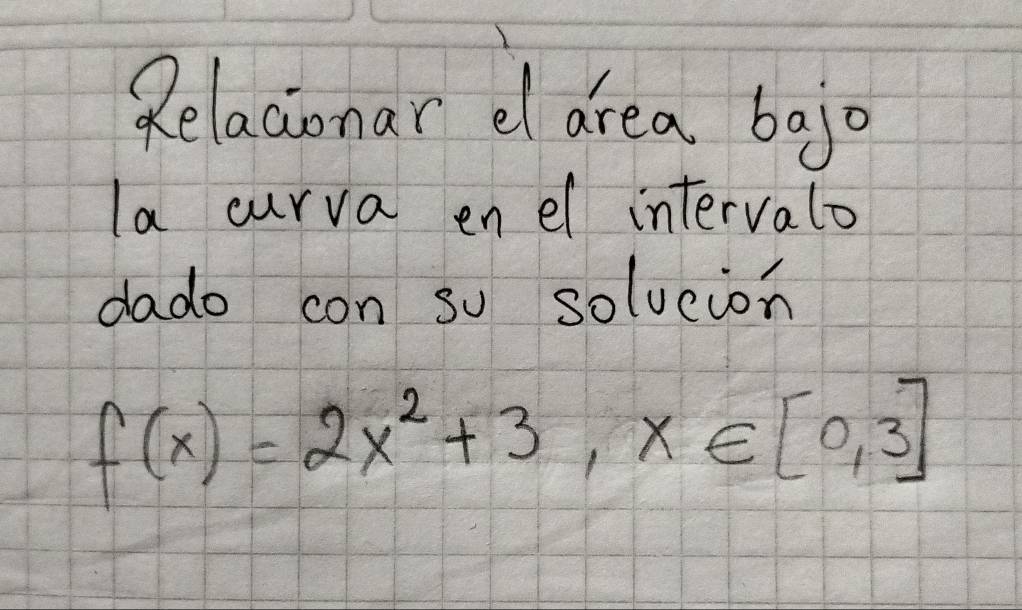 Relacionar el área bajo
la curva en el intervalo
dado con su solución
f(x) = 2x² + 3 , x ∈ [0,3]